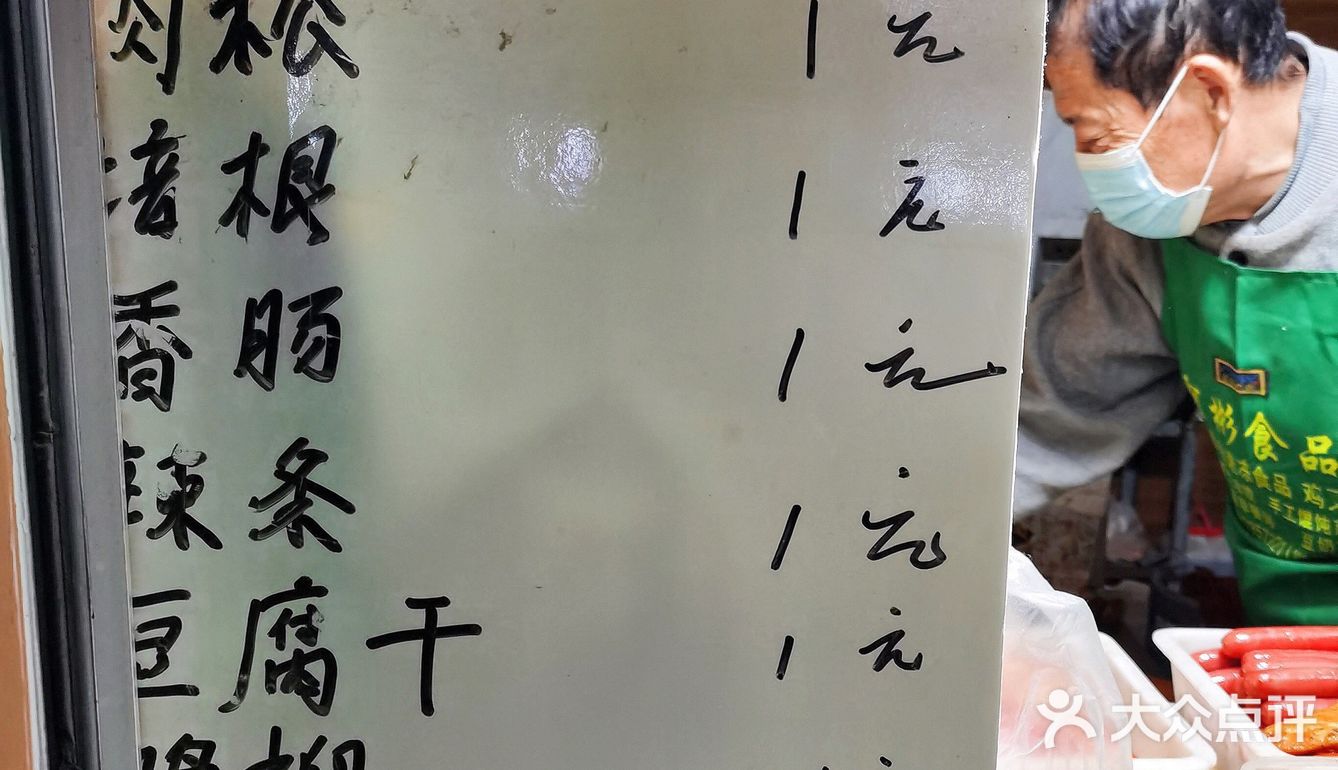 肉松 1元
培根 1元
香肠 1元
辣条 1元
豆腐干 1元
柳 元
彬食品
冻食品 鸡
手工馄饨
大众点评